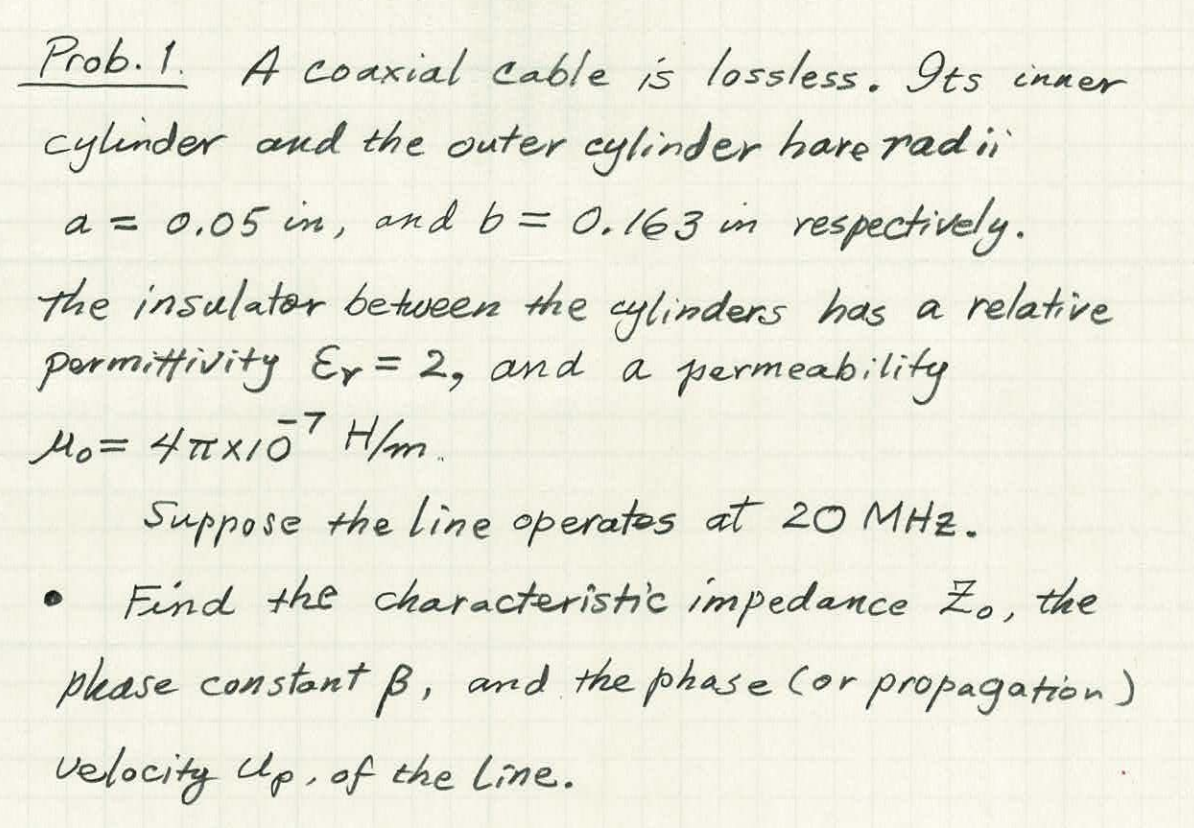 Prob. 1. A coaxial cable is lossless. Its inner
cylinder and the outer cylinder have radii
a = 0.05 in, and b = 0.163 in respectively.
The insulator between the cylinders has a relative
permittivity εr = 2, and a permeability
μ₀ = 4π×10⁻⁷ H/m.
Suppose the line operates at 20 MHz.
• Find the characteristic impedance Z₀, the
phase constant β, and the phase (or propagation)
velocity up, of the line.